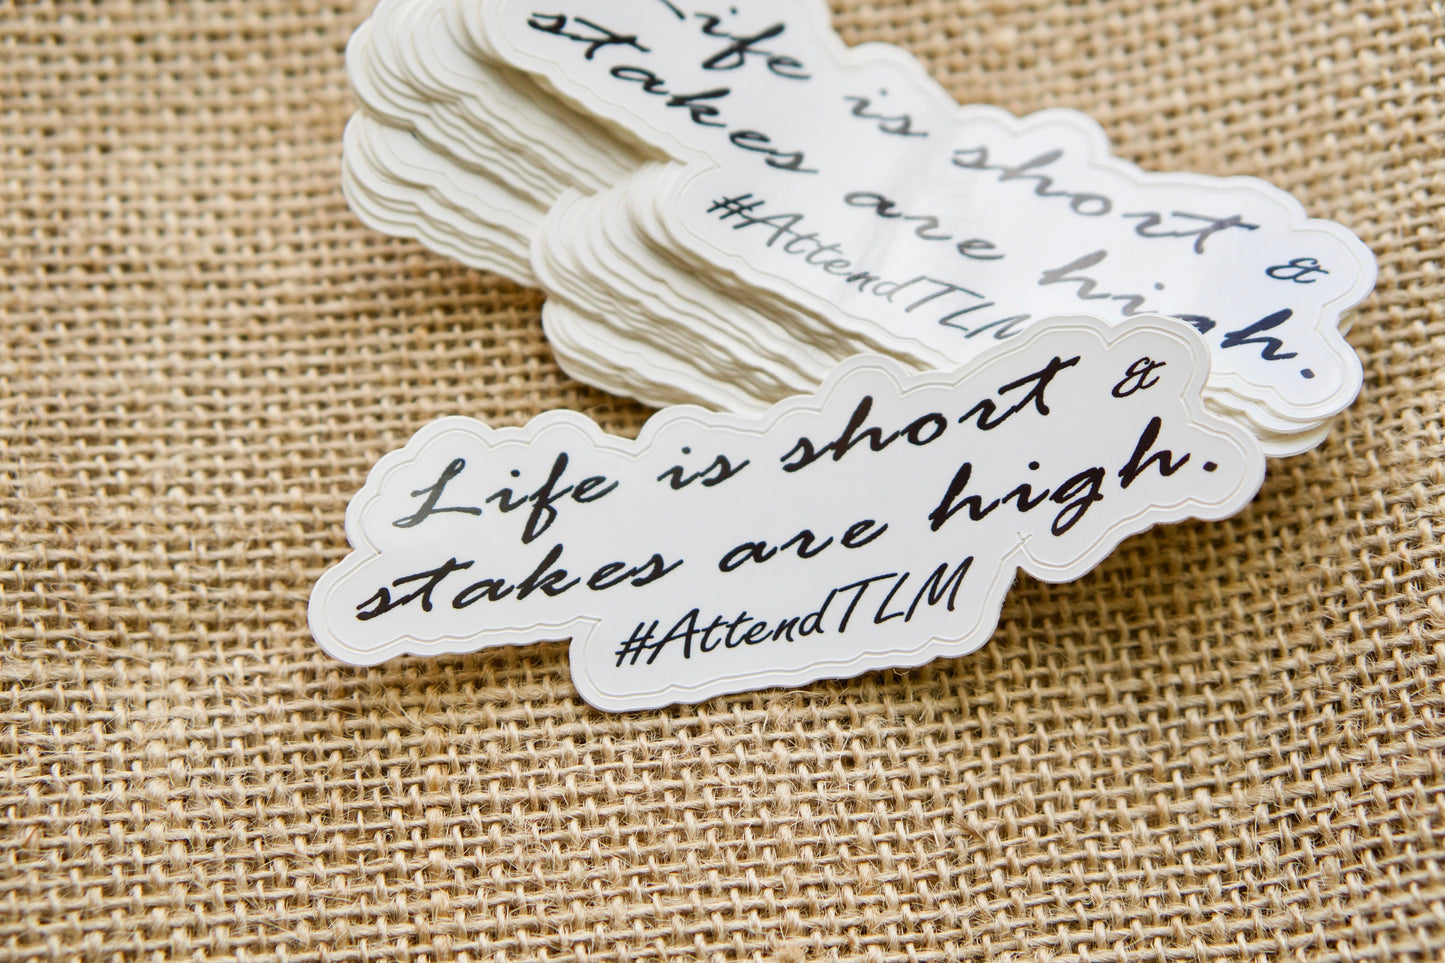 Life is short &
stakes are high.
#AttendTLM
Life is short &
stakes are high.
#AttendTLM